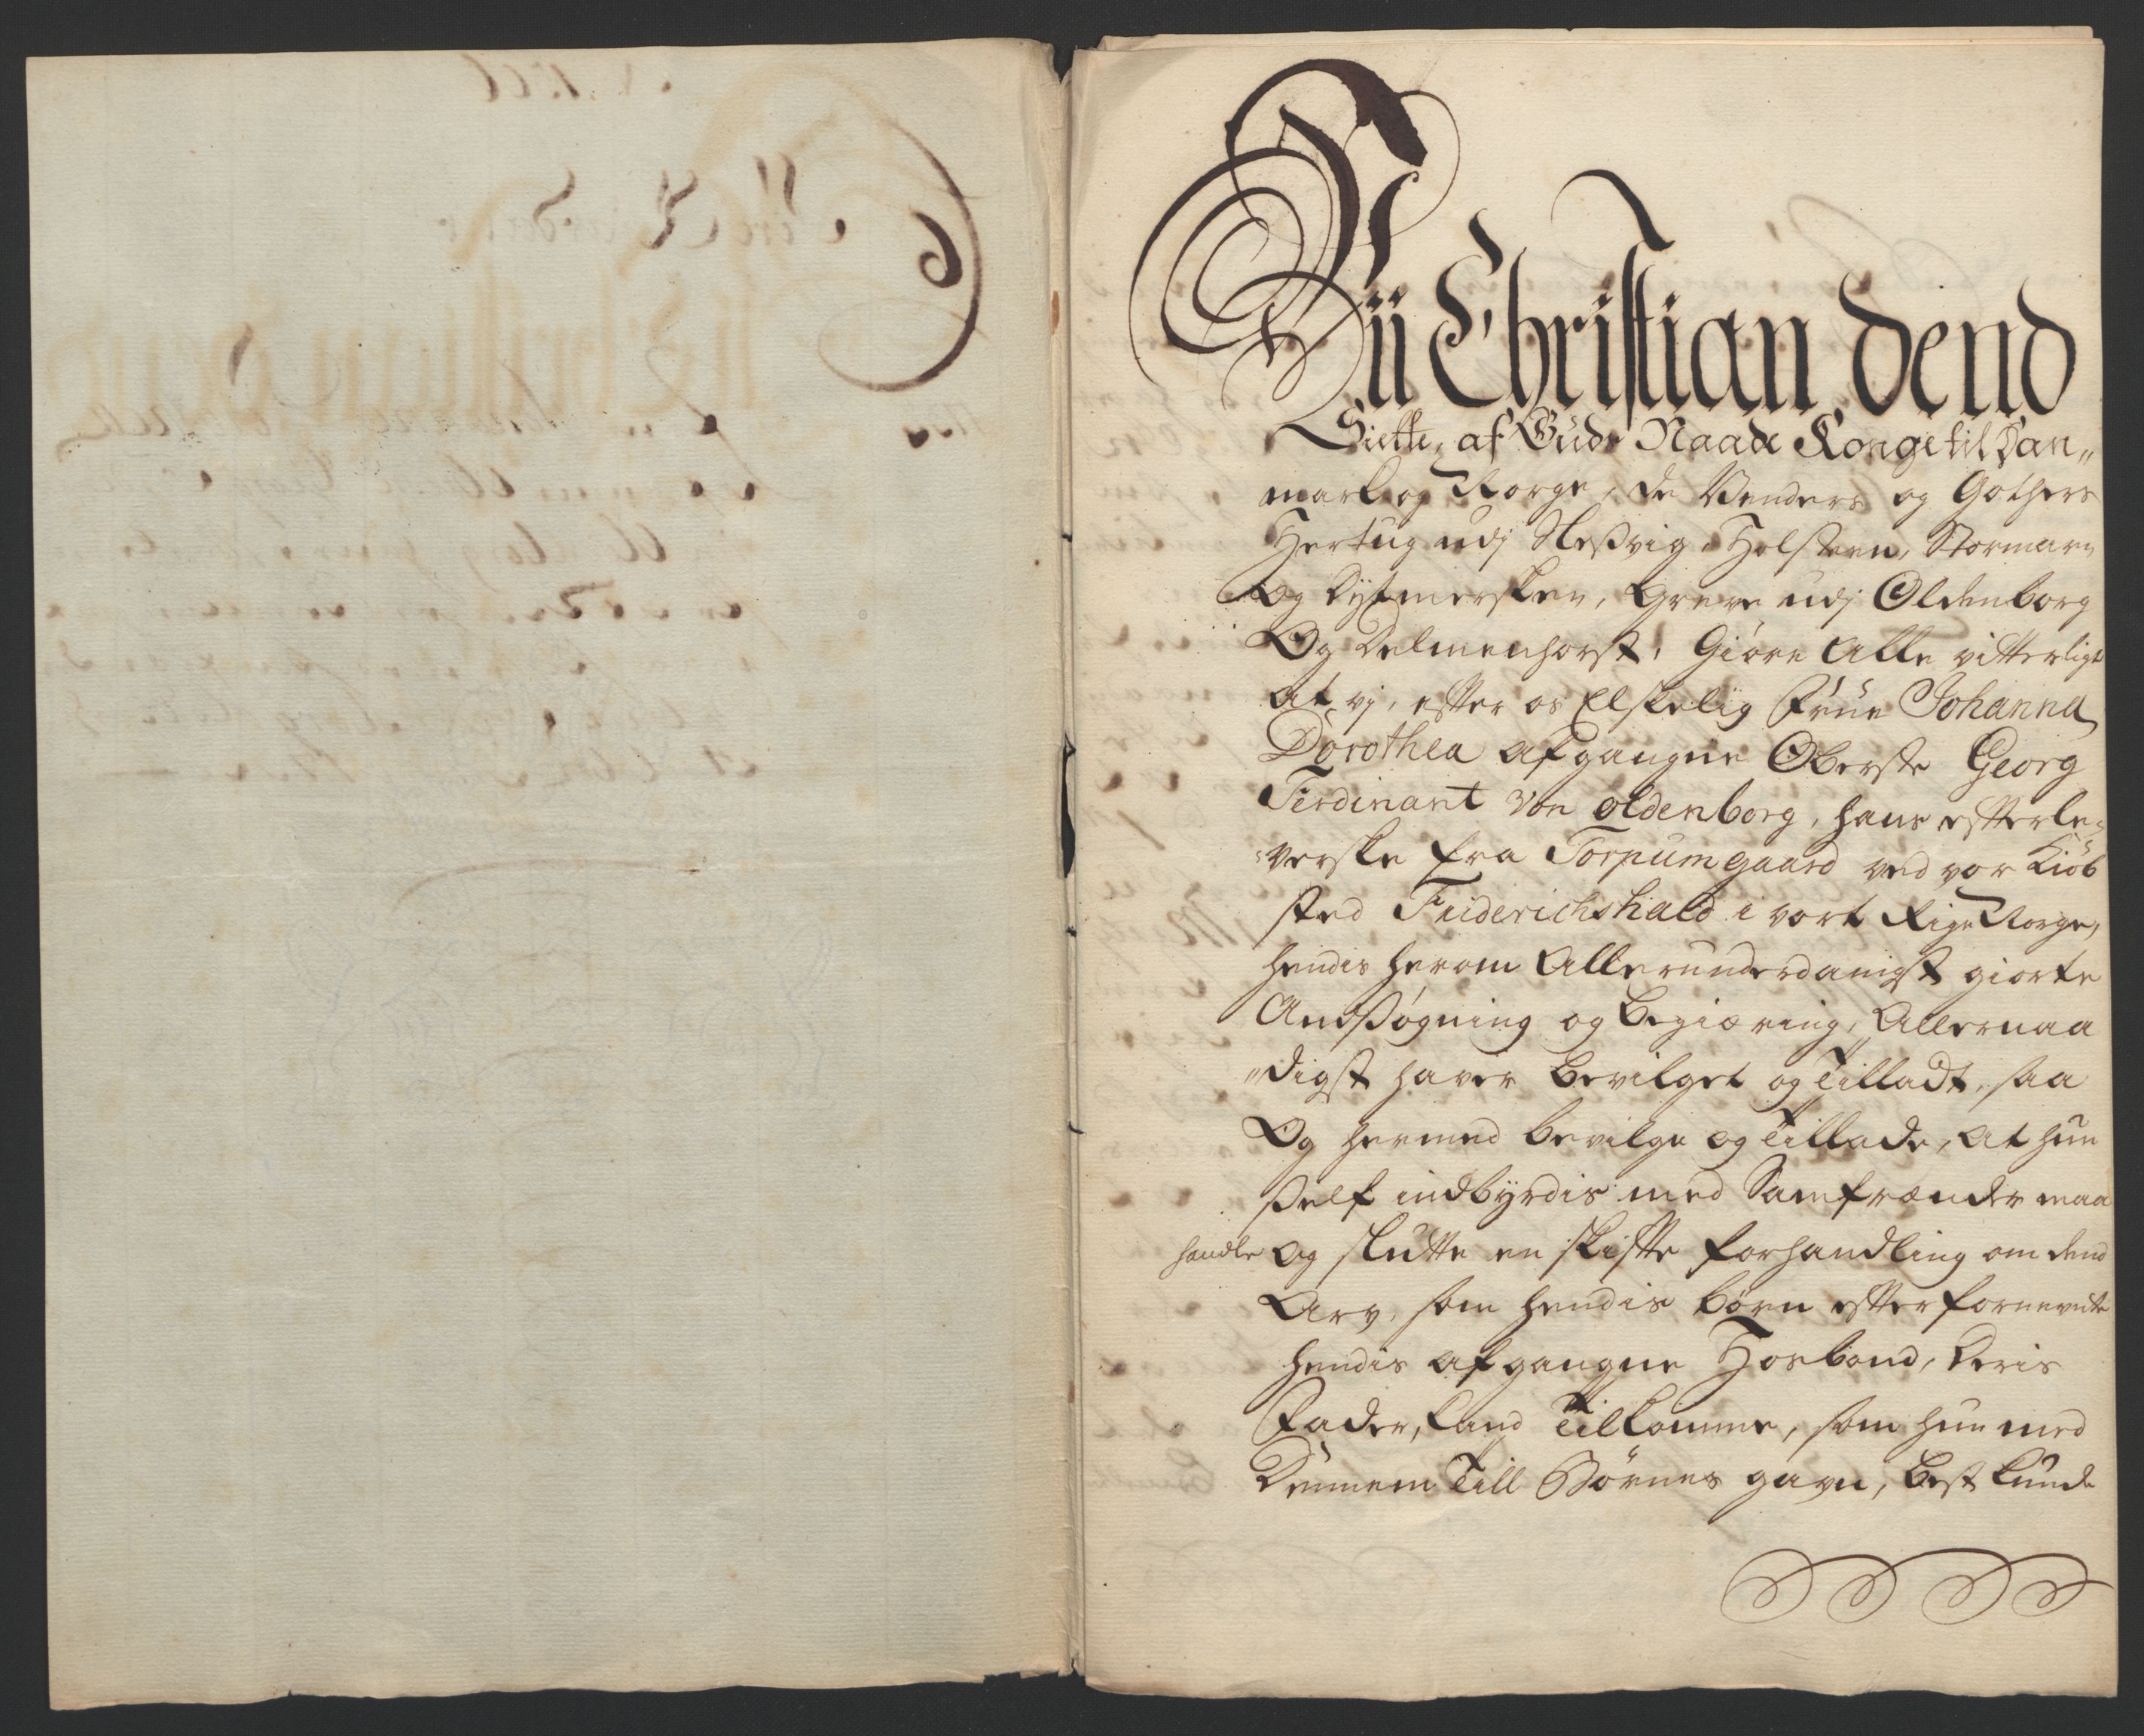 Vii Christian dend
Siette, af Guds Naade Konge til Dan„
mark og Norge, de Venders og Gothers
Hertug udj Sleßvig, Holsteen, Stormarn
Og Dytmersken, Greve udj Oldenborg
Og Delmenhorst, Giöre Alle vitterligt
at vj, efter os Elskelig Frue Johanna
Dorothea afgangne Oberste Georg
Ferdinant von oldenborg, hans efterle„
verske fra Torpumgaard ved vor Kiöb
sted Friderichshald i vort Rige Norge,
hendis herom Allerunderdanigst giorte
Andsøgning og begiæring, Allernaa
„digst haver bevilget og Tilladt, saa
Og hermed bevilge og Tillade, at hun
Self indbyrdis med Samfrænder maa
handle og slutte en skifte forhandling om dend
Arv, som hendis börn efter fornevnte
hendis afgangne Hosbond, deris
Fader, kand Tilkomme, som hun med
Dennem Till Börnes gavn, best kunde